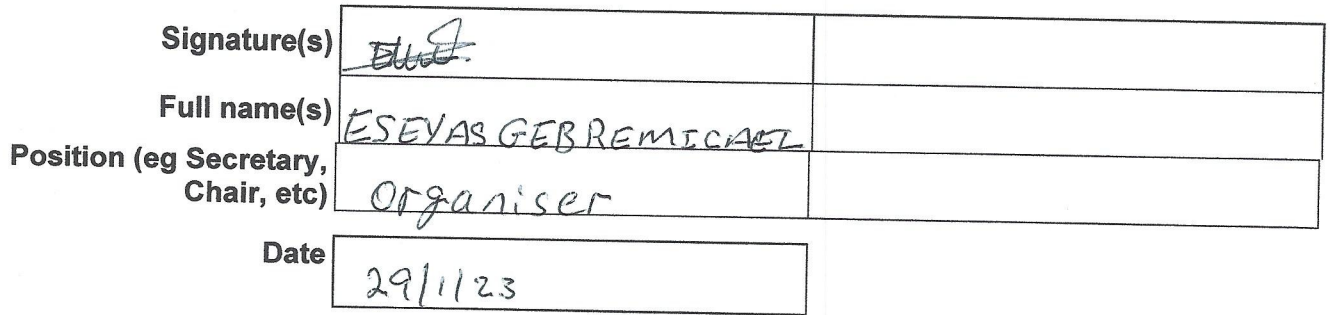 Signature(s)
Full name(s) ESEYAS GEBREMICAEL
Position (eg Secretary,
Chair, etc) Organiser
Date 29/1/23